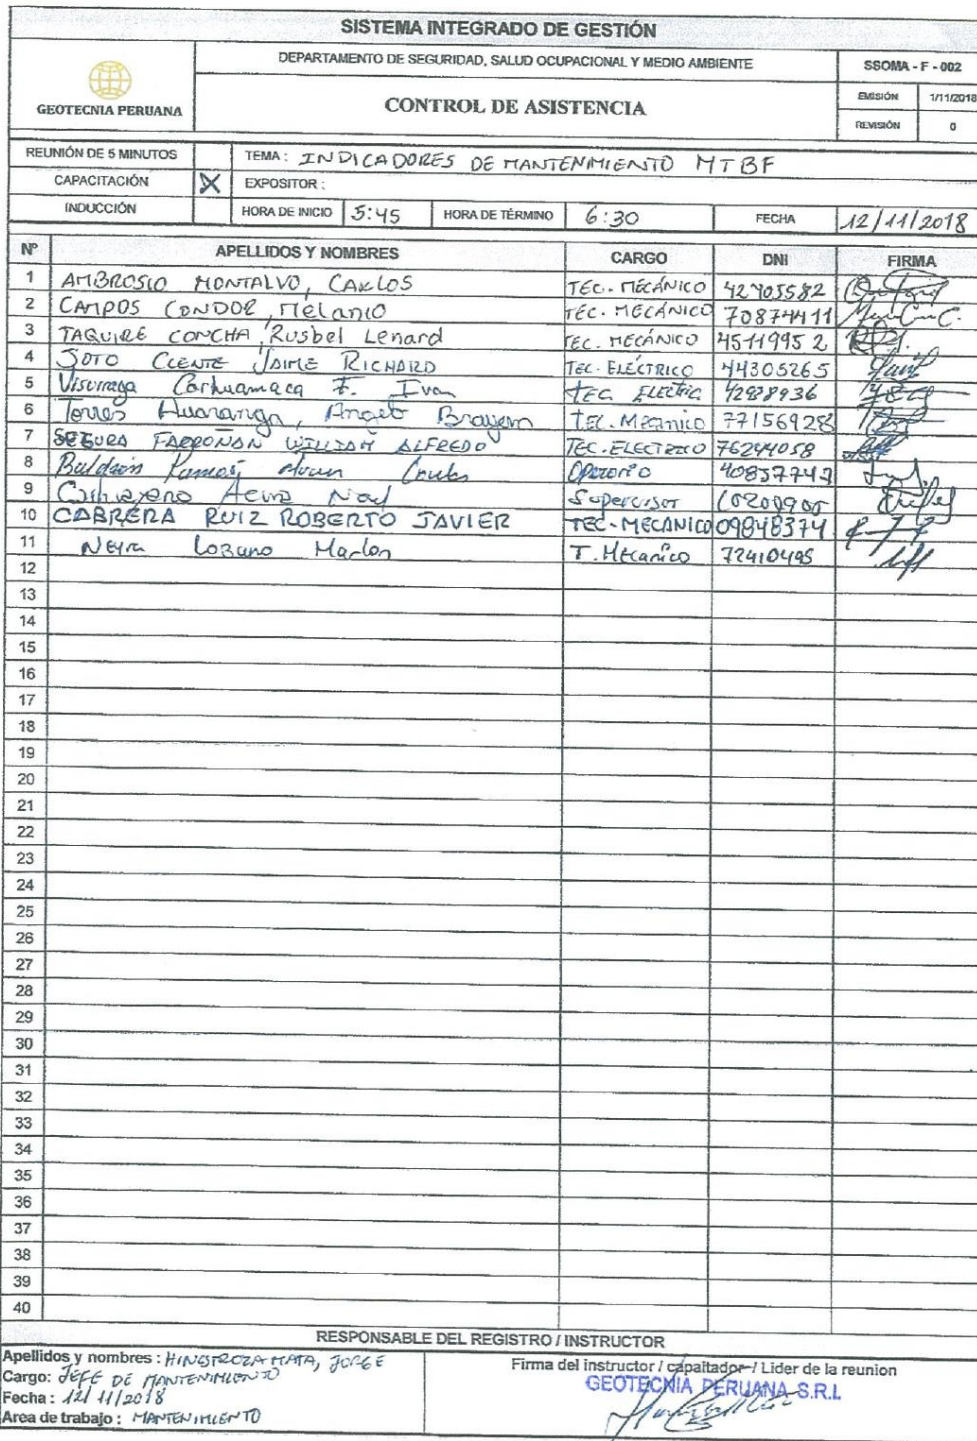 SISTEMA INTEGRADO DE GESTIÓN
GEOTECNIA PERUANA
DEPARTAMENTO DE SEGURIDAD, SALUD OCUPACIONAL Y MEDIO AMBIENTE
SSOMA - F - 002
CONTROL DE ASISTENCIA
EMISIÓN 1/11/2018
REVISIÓN 0
REUNIÓN DE 5 MINUTOS TEMA : INDICADORES DE MANTENIMIENTO MTBF
CAPACITACIÓN X EXPOSITOR :
INDUCCIÓN HORA DE INICIO 5:45 HORA DE TÉRMINO 6:30 FECHA 12/11/2018
Nº APELLIDOS Y NOMBRES CARGO DNI FIRMA
1 AMBROSIO MONTALVO, CARLOS TEC. MECÁNICO 42905582
2 CAMPOS CONDOR, Melanio TÉC. MECÁNICO 70874411
3 TAQUIRE CONCHA, Rusbel Lenard TEC. MECÁNICO 45119952
4 SOTO CLENTE JAIME RICHARD TEC. ELÉCTRICO 44305265
5 Visurraga Carhuamaca F. Ivan TEC Electric
6 Torres Huaranga, Angelo Brayam TEC. Mecanico 77156928
7 SEGURA FARROÑAN WILLIAM ALFREDO TEC. ELECTRICO 76244058
8 Baldeón Ramos
9 Supervisor
10 CABRERA RUIZ ROBERTO JAVIER TEC-MECANICO 09848374
11 Neyra Lozano Marlon T. Mecanico 72410495
12
13
14
15
16
17
18
19
20
21
22
23
24
25
26
27
28
29
30
31
32
33
34
35
36
37
38
39
40
RESPONSABLE DEL REGISTRO / INSTRUCTOR
Apellidos y nombres : HINOSTROZA MATA, JORGE
Cargo: JEFE DE MANTENIMIENTO
Fecha : 12/11/2018
Area de trabajo : MANTENIMIENTO
Firma del instructor / capaitador / Lider de la reunion
GEOTECNIA PERUANA S.R.L